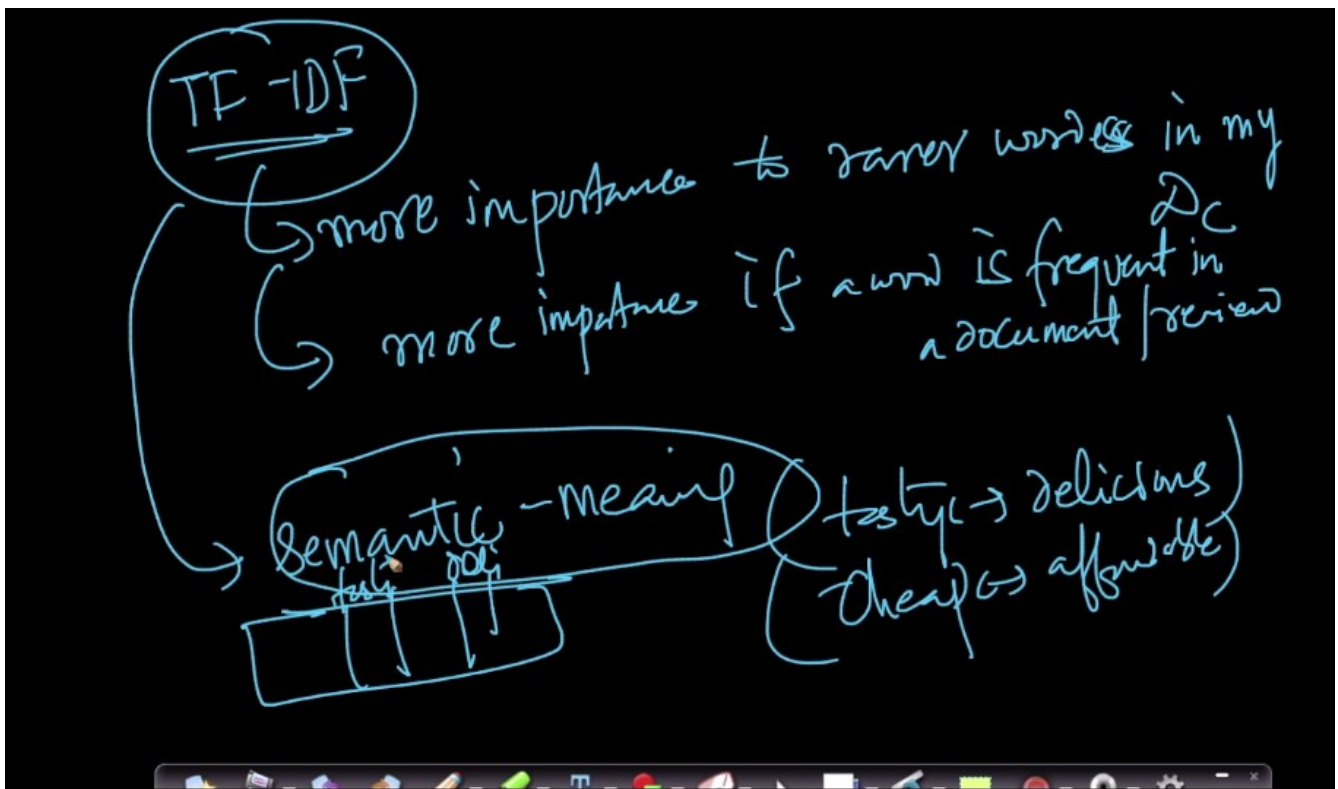 TF-IDF
more importance to rarer words in my
Dc
more importance if a word is frequent in
a document/review
semantic-meaning (tasty ↔ delicious)
(cheap ↔ affordable)